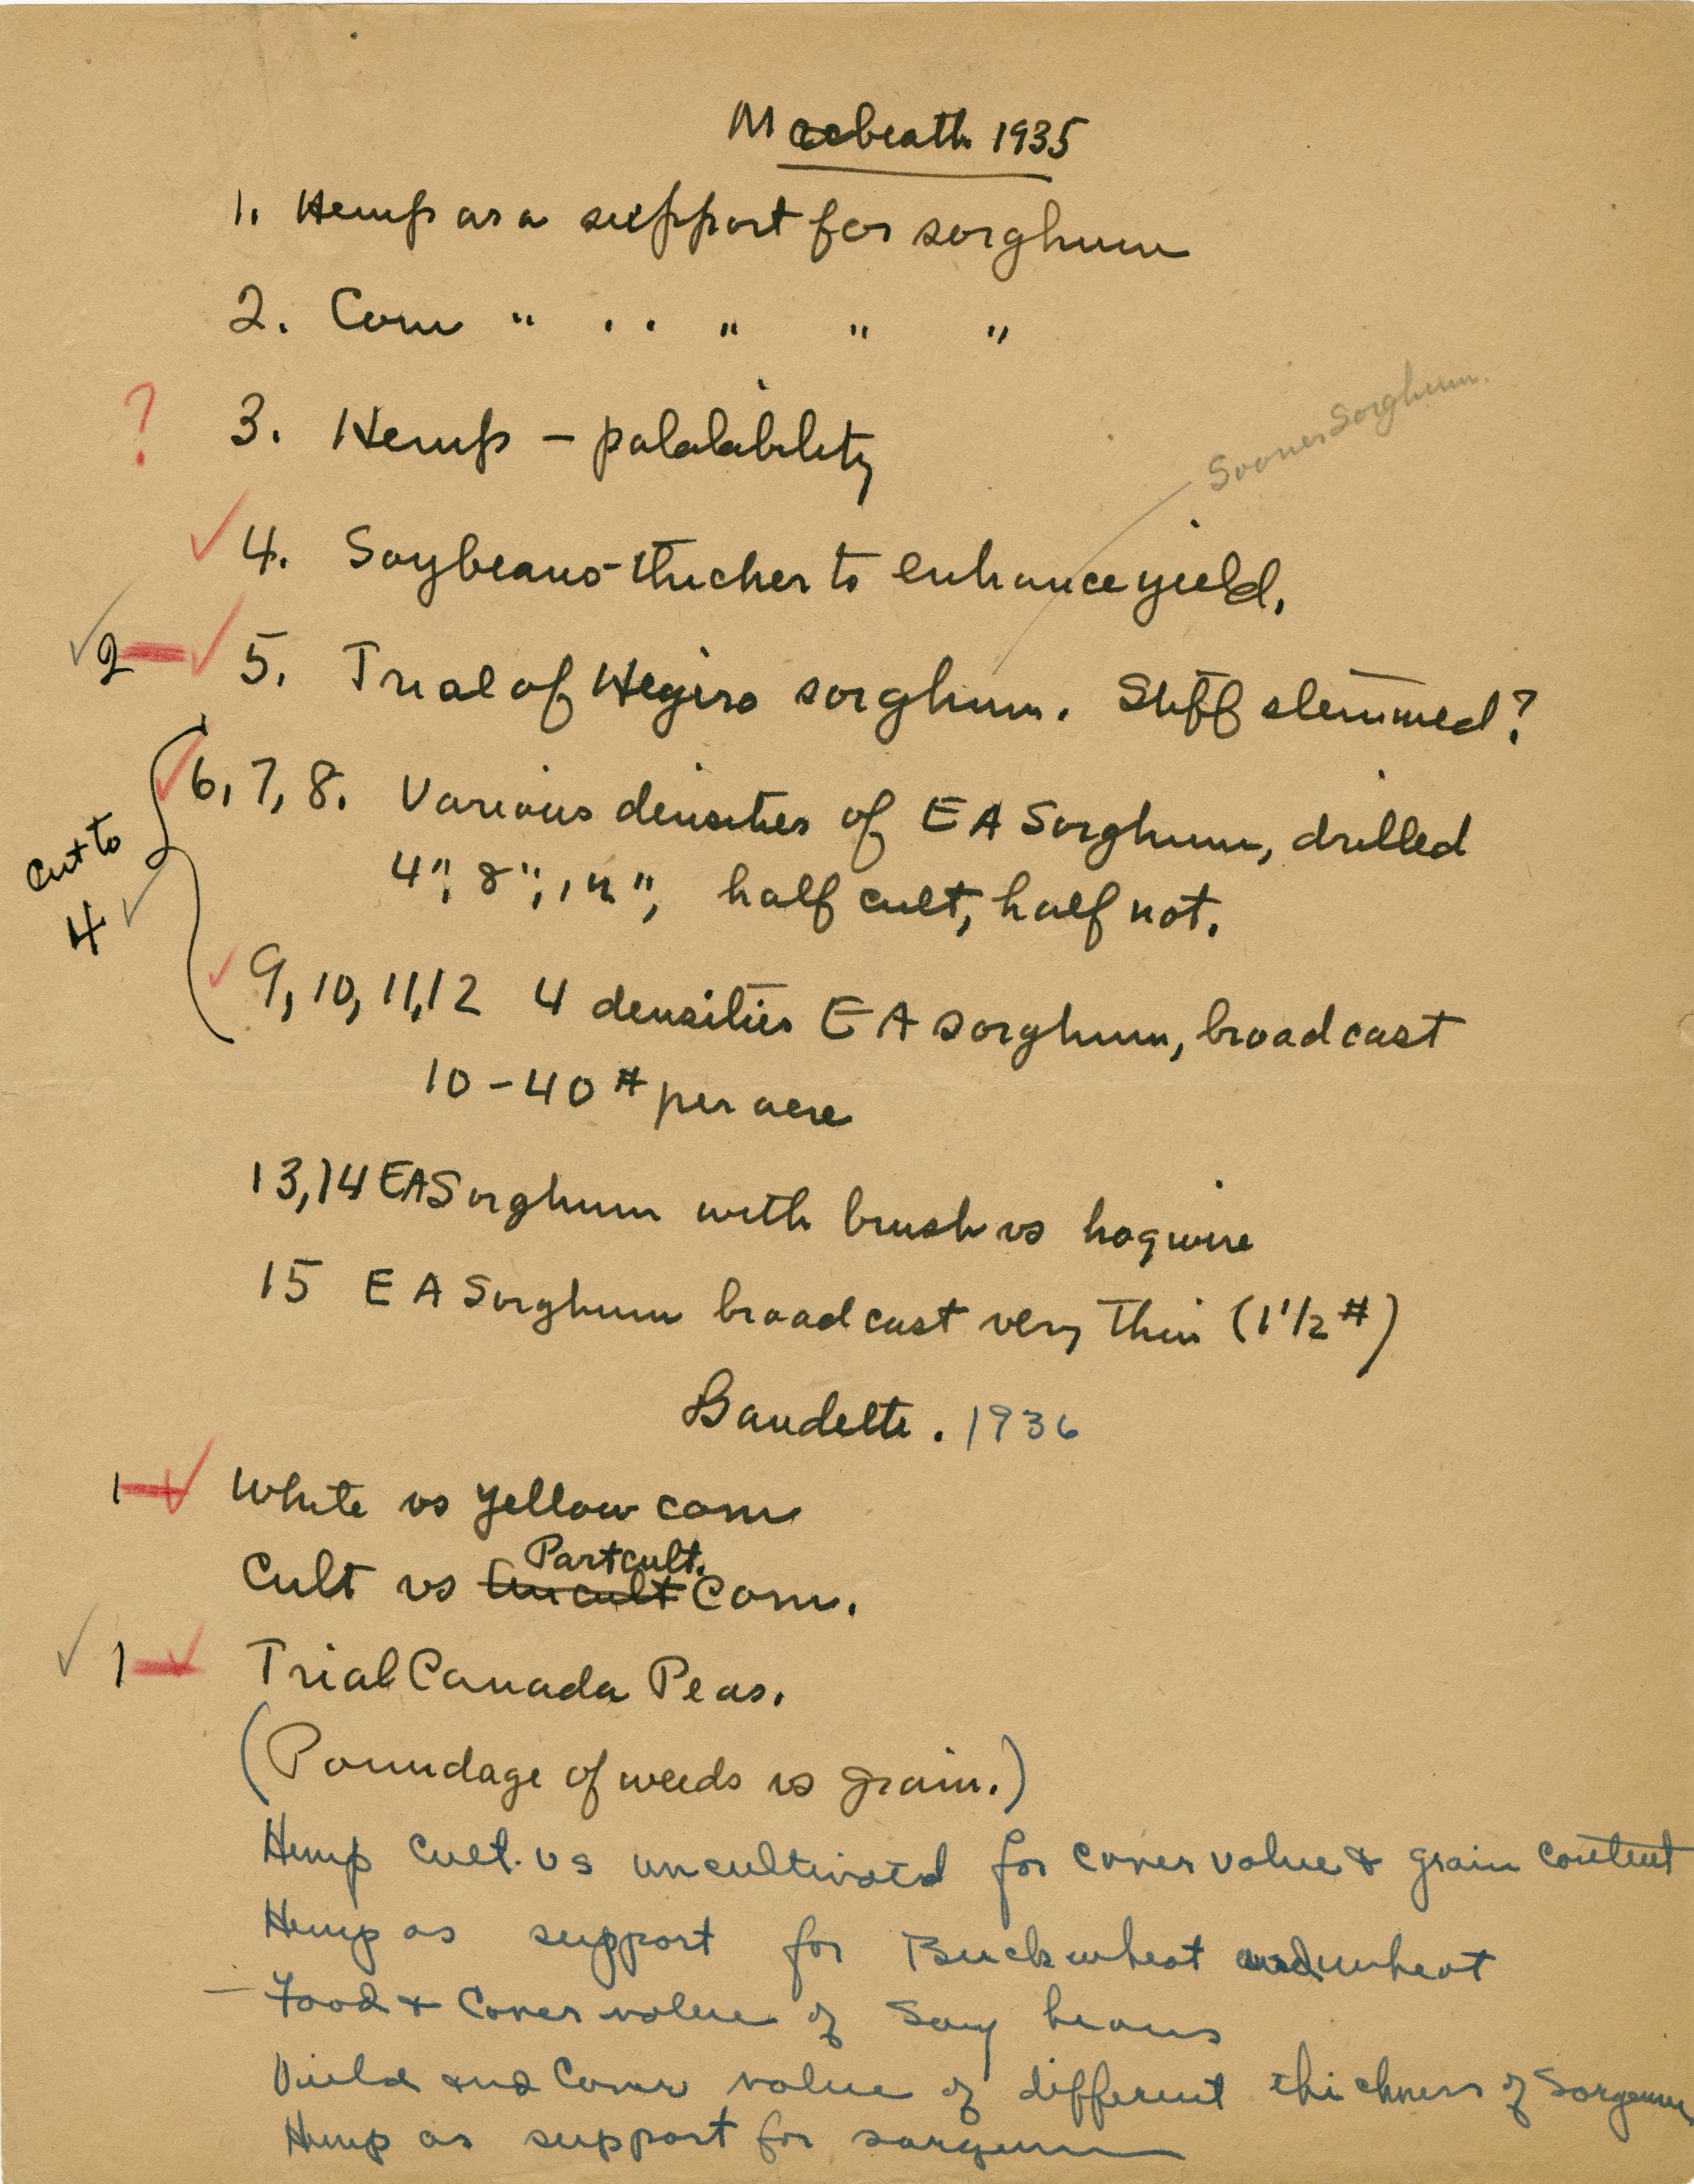 Macbeath 1935
1. Hemp as a support for sorghum
2. Corn " " " " "
? 3. Hemp – palatability
Sooner Sorghum.
✓ 4. Soybeans thicker to enhance yield.
✓ 2 – ✓ 5. Trial of Hegira sorghum. Stiff stemmed?
✓ 6, 7, 8. Various densities of EA Sorghum, drilled
4", 8", 12", half cult, half not.
cut to
4 ✓
✓ 9, 10, 11, 12 4 densities EA sorghum, broadcast
10 – 40 # per acre
13, 14 EA Sorghum with brush vs hogwire
15 EA Sorghum broadcast very thin (1 1/2 #)
Baudette. 1936
1 – ✓ White vs yellow corn
Part cult.
Cult vs Uncult Corn.
✓ 1 – ✓ Trial Canada Peas.
(Poundage of weeds vs grain.)
Hemp cult. vs uncultivated for cover value & grain content
Hemp as support for Buckwheat and wheat
– Food & Cover value of Soy beans
Yield and Cover value of different thickness of Sorgeum
Hemp as support for sorgeum